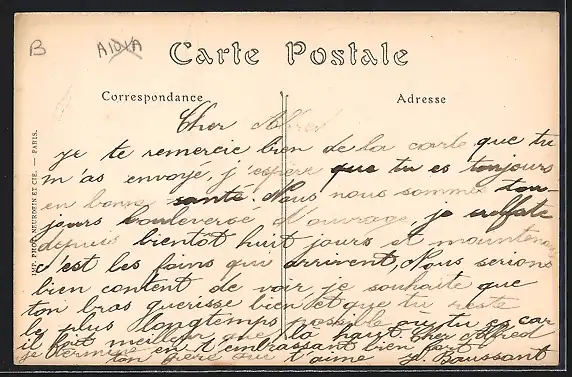 B
Carte Postale
Correspondance
Adresse
IMP. PHOT. NEURDEIN ET CIE. — PARIS.
Cher Alfred
je te remercie bien de la carte que tu
m'as envoyé, j'espère que tu es toujours
en bonne santé. Nous nous sommes tou-
jours bouleverse d'ouvrage, je sulfate
depuis bientot huit jours et maintenant
c'est les foins qui arrivent, Nous serions
bien content de voir je souhaite que
ton bras guerisse bien et que tu reste
le plus longtemps possible où tu es car
il fait meilleur que la haut. Cher Alfred
je termine en t'embrassant bien fort
ton père qui t'aime J. Baussant